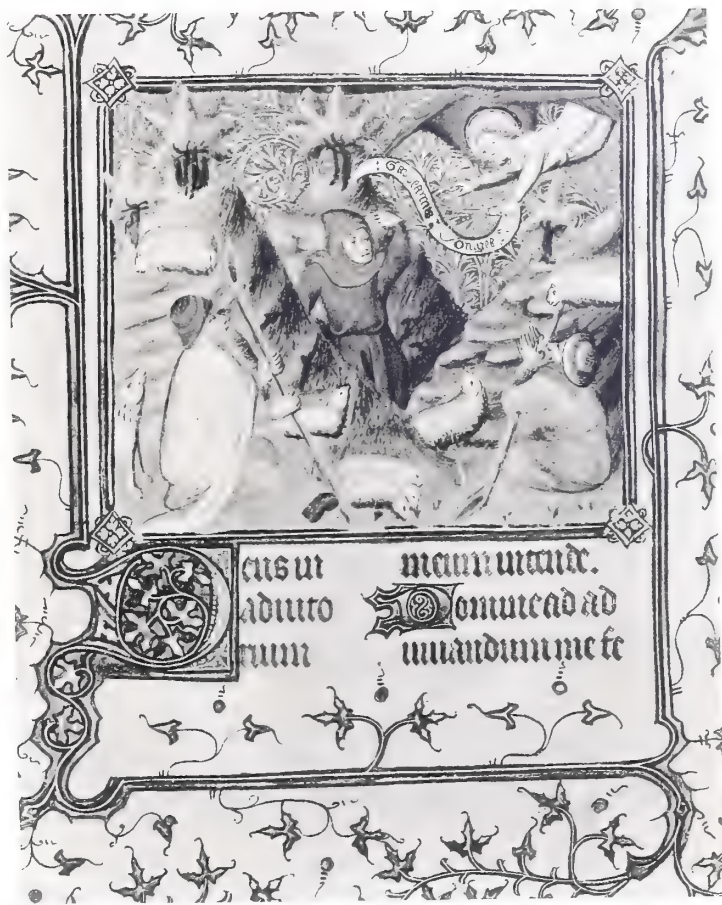 Deus in
adiuto
rium
meum intende.
Domine ad ad
iuuandum me fe